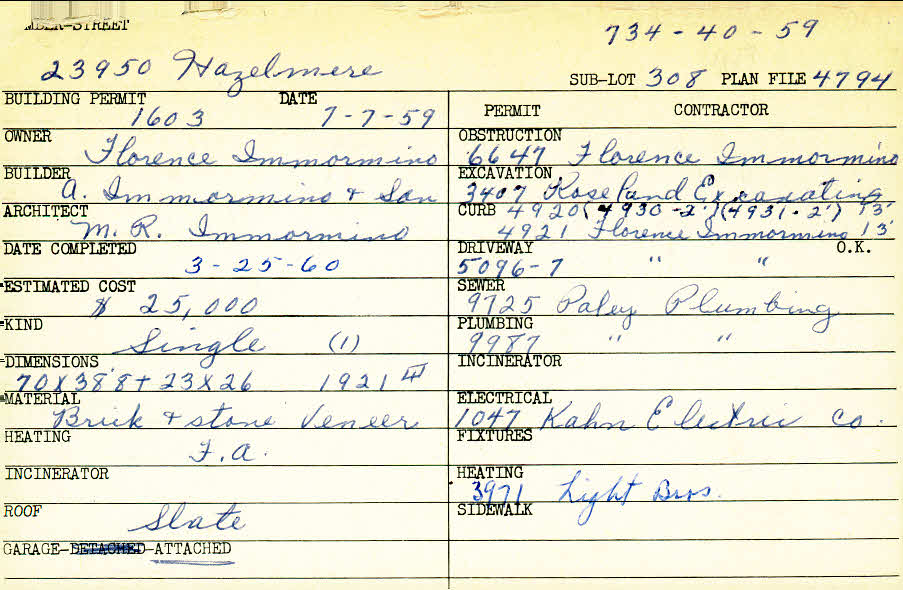 NUMBER-STREET
734-40-59
23950 Hazelmere
SUB-LOT 308 PLAN FILE 4794
BUILDING PERMIT DATE
1603 7-7-59
OWNER
Florence Immormino
BUILDER
A. Immormino & Son
ARCHITECT
M. R. Immormino
DATE COMPLETED
3-25-60
ESTIMATED COST
$ 25,000
KIND
Single (1)
DIMENSIONS
70 X 38'8 + 23 X 26 1921 #
MATERIAL
Brick & stone Veneer
HEATING
F.A.
INCINERATOR
ROOF
Slate
GARAGE-DETACHED-ATTACHED
PERMIT CONTRACTOR
OBSTRUCTION
6647 Florence Immormino
EXCAVATION
3407 Roseland Excavating
CURB 4920 (4930-2') (4931-2') 13'
4921 Florence Immormino 13'
DRIVEWAY O.K.
5096-7 " "
SEWER
9725 Paley Plumbing
PLUMBING
9987 " "
INCINERATOR
ELECTRICAL
1047 Kahn Electric Co.
FIXTURES
HEATING
3971 Light Bros.
SIDEWALK